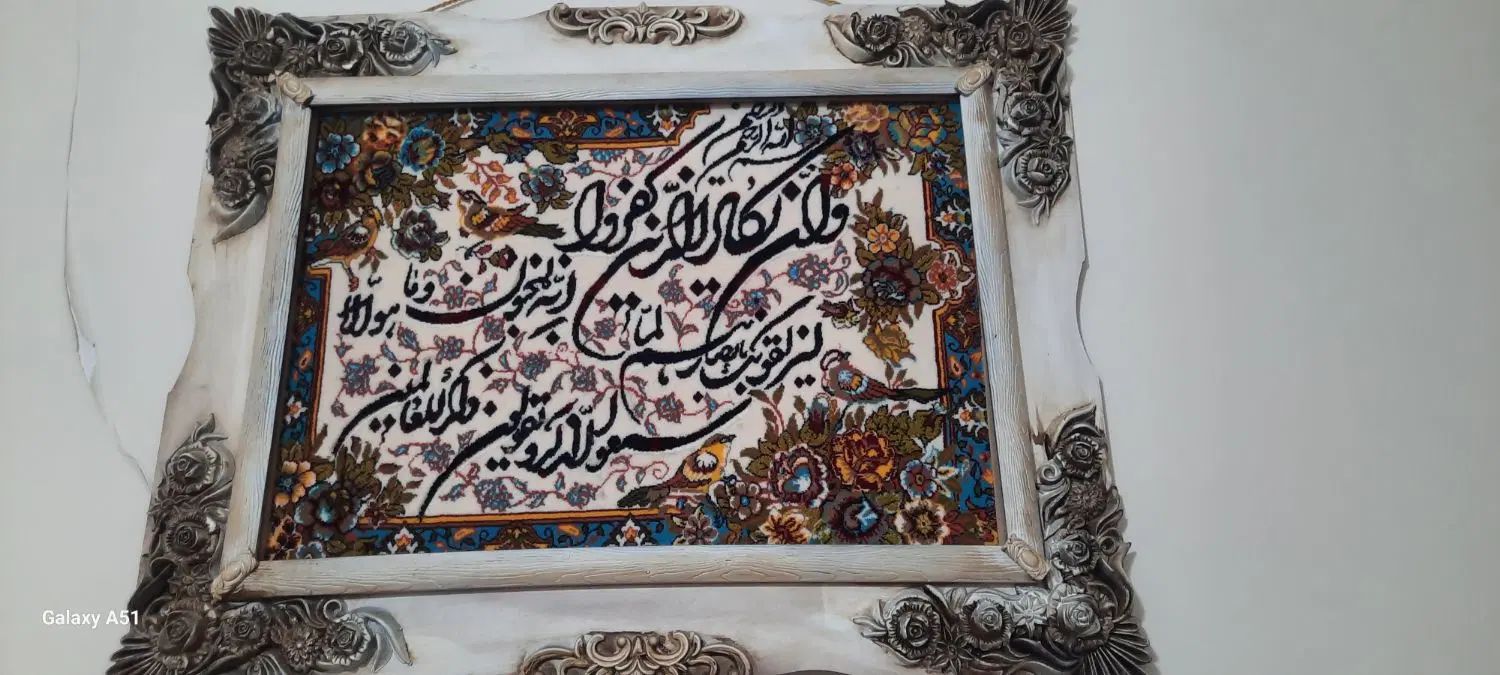 بسم الله الرحمن الرحیم
وان یکاد الذین کفروا
لیزلقونک بابصارهم لما
سمعوا الذکر و یقولون
انه لمجنون وما هو الا
ذکر للعالمین
Galaxy A51